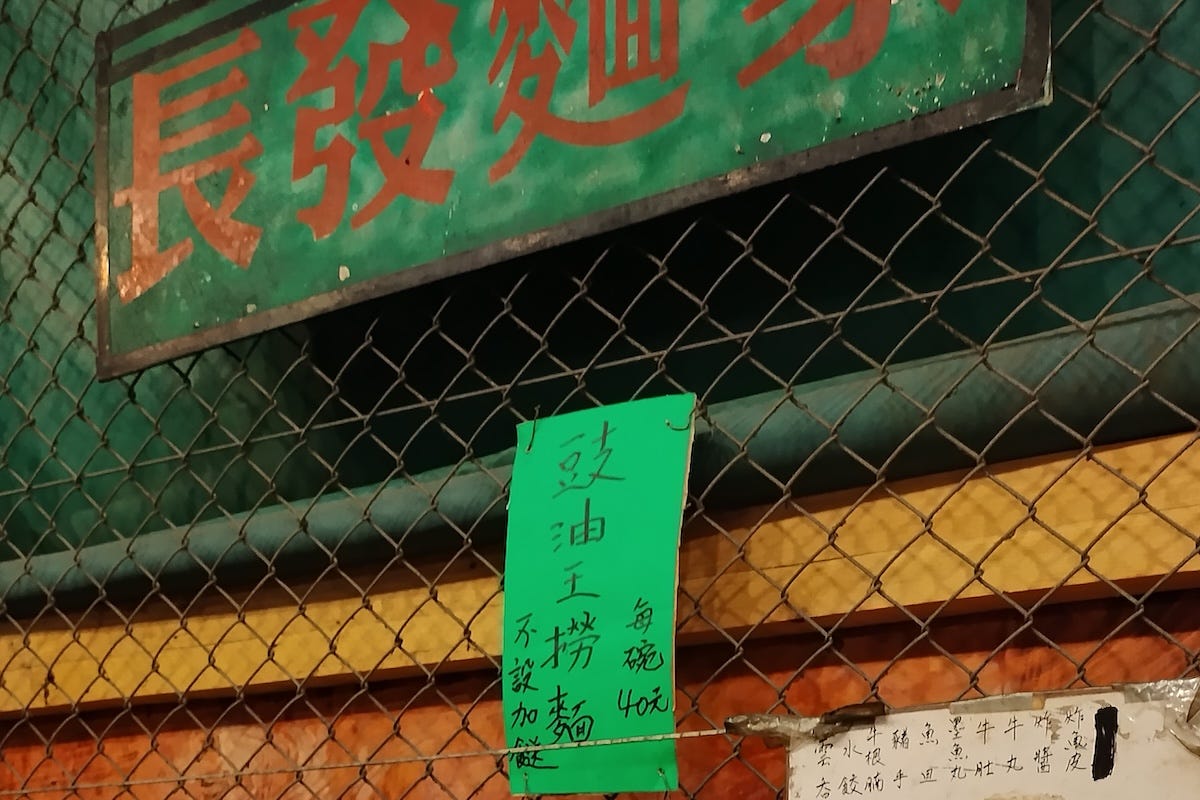 長發麵家
豉油王撈麵
每碗40元
不設加餸
炸魚皮
炸醬
牛丸
牛肚
墨魚丸
魚旦
豬手
牛根腩
水餃
雲吞